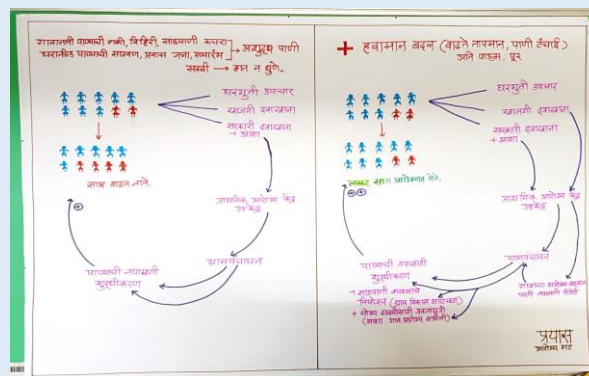 गावातली पाण्याची टाकी, विहिरी, सांडपाणी कचरा
घरातील पाण्याची साठवण, प्रवास जत्रा, समारंभ
अशुद्ध पाणी
सवयी → हात न धुणे.
घरगुती उपचार
खाजगी दवाखाना
सरकारी दवाखाना
+ आशा
साथ वाढत जाते.
प्राथमिक आरोग्य केंद्र
उपकेंद्र
ग्रामपंचायत
पाण्याची तपासणी
शुद्धीकरण
+ हवामान बदल (वाढते तापमान, पाणी टंचाई)
अति पाऊस, पूर
घरगुती उपचार
खाजगी दवाखाना
सरकारी दवाखाना
+ आशा
लवकर साथ आटोक्यात येते.
प्राथमिक आरोग्य केंद्र
उपकेंद्र
ग्रामपंचायत
पाण्याची तपासणी
शुद्धीकरण
+ सांडपाणी कचऱ्याचे
नियोजन (ग्राम विकास आराखडा)
+ योग्य सवयींसाठी जनजागृती
पाणी तपासणी
प्रयास
आरोग्य गट